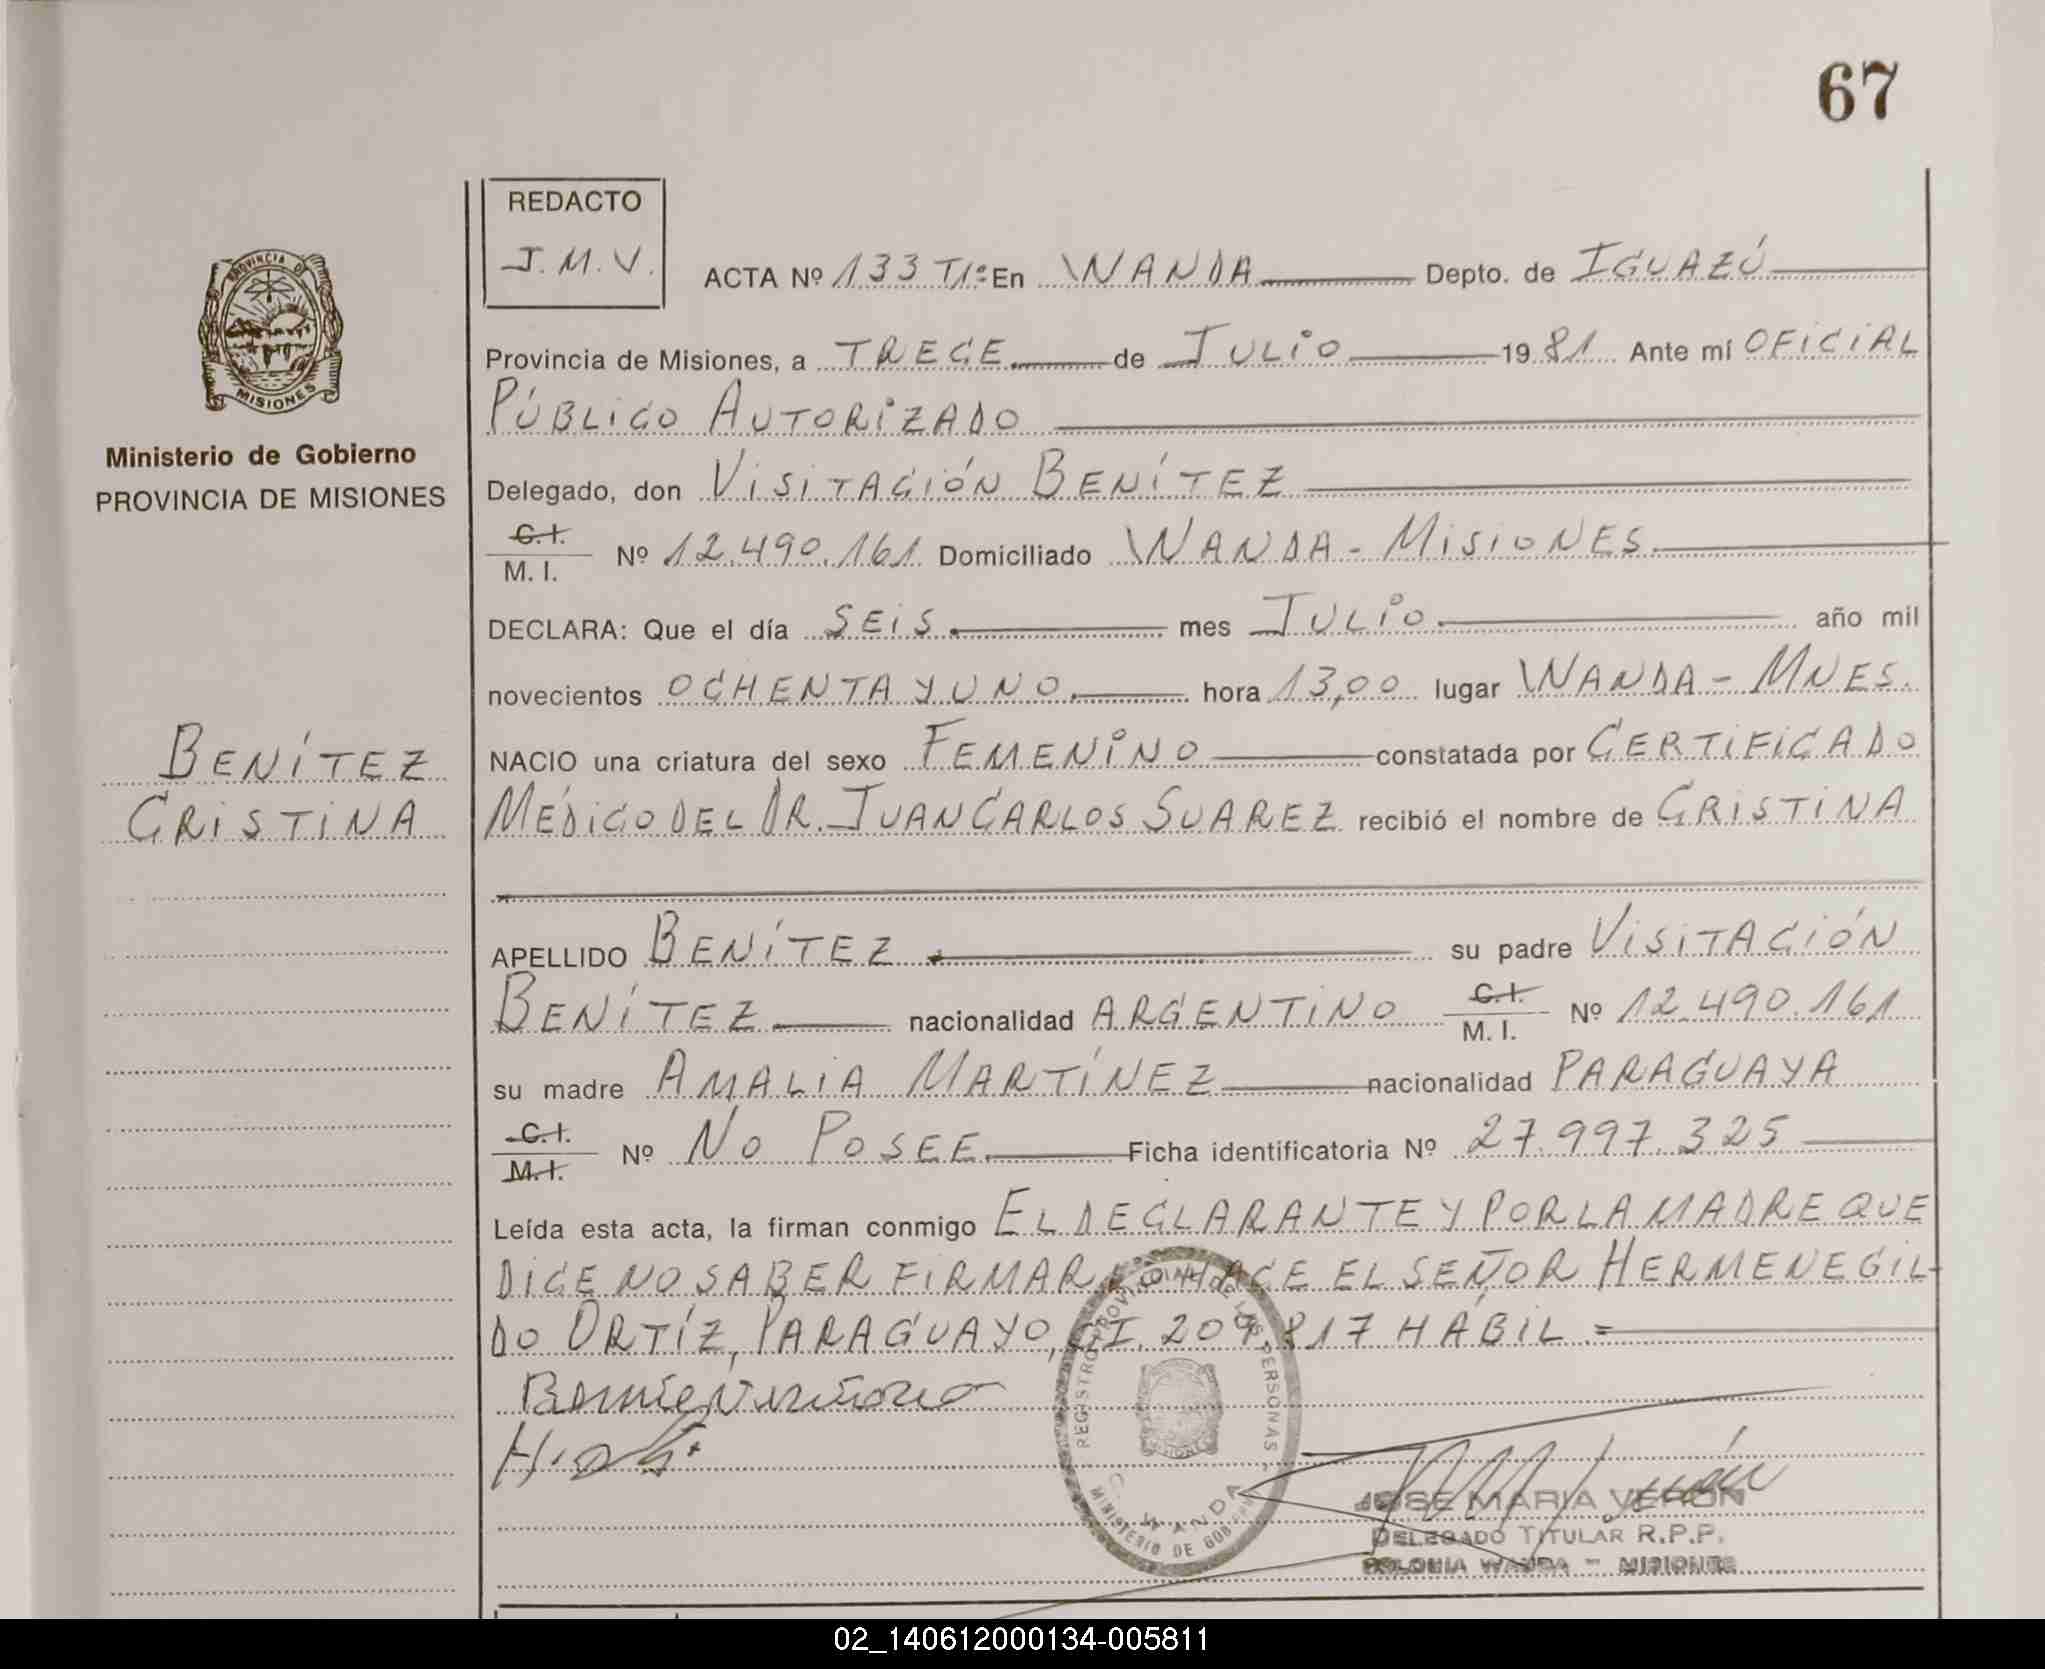 67
REDACTO
J.M.V.
ACTA Nº 133 T1º En WANDA Depto. de IGUAZÚ
PROVINCIA DE
MISIONES
Provincia de Misiones, a TRECE de JULIO 1981 Ante mí OFICIAL
PÚBLICO AUTORIZADO
Ministerio de Gobierno
PROVINCIA DE MISIONES
Delegado, don VISITACIÓN BENÍTEZ
C.I.
M. I. Nº 12.490.161 Domiciliado WANDA - MISIONES
DECLARA: Que el día SEIS mes JULIO año mil
novecientos OCHENTA Y UNO hora 13,00 lugar WANDA - MNES.
BENÍTEZ
CRISTINA
NACIO una criatura del sexo FEMENINO constatada por CERTIFICADO
MÉDICO DEL DR. JUAN CARLOS SUAREZ recibió el nombre de CRISTINA
APELLIDO BENÍTEZ su padre VISITACIÓN
BENÍTEZ nacionalidad ARGENTINO C.I. M. I. Nº 12.490.161
su madre AMALIA MARTÍNEZ nacionalidad PARAGUAYA
C.I.
M.I. Nº NO POSEE Ficha identificatoria Nº 27.997.325
Leída esta acta, la firman conmigo EL DECLARANTE Y POR LA MADRE QUE
DICE NO SABER FIRMAR LO HACE EL SEÑOR HERMENEGIL-
DO ORTÍZ, PARAGUAYO, CI. 817 HÁBIL.=
REGISTRO PROVINCIAL DE LAS PERSONAS
MISIONES
WANDA
MINISTERIO DE GOB
JOSE MARIA VERON
DELEGADO TITULAR R.P.P.
COLONIA WANDA - MISIONES
02_140612000134-005811